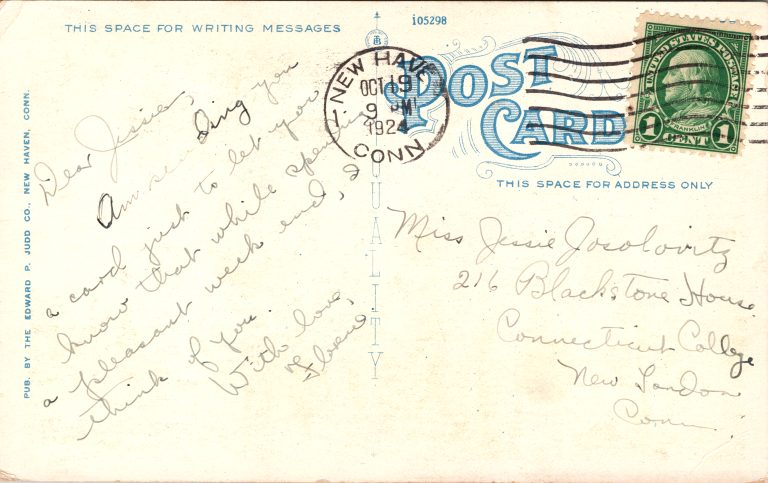 THIS SPACE FOR WRITING MESSAGES
105298
POST
CARD
THIS SPACE FOR ADDRESS ONLY
NEW HAVEN
OCT 19
9 PM
1924
CONN.
UNITED STATES POSTAGE
FRANKLIN
1 CENT 1
PUB. BY THE EDWARD P. JUDD CO., NEW HAVEN, CONN.
QUALITY
Dear Jessie,
Am sending you
a card just to let you
know that while spending
a pleasant week end, I
think of you.
With love,
Miss Jessie Josolovitz
216 Blackstone House
Connecticut College
New London
Conn.